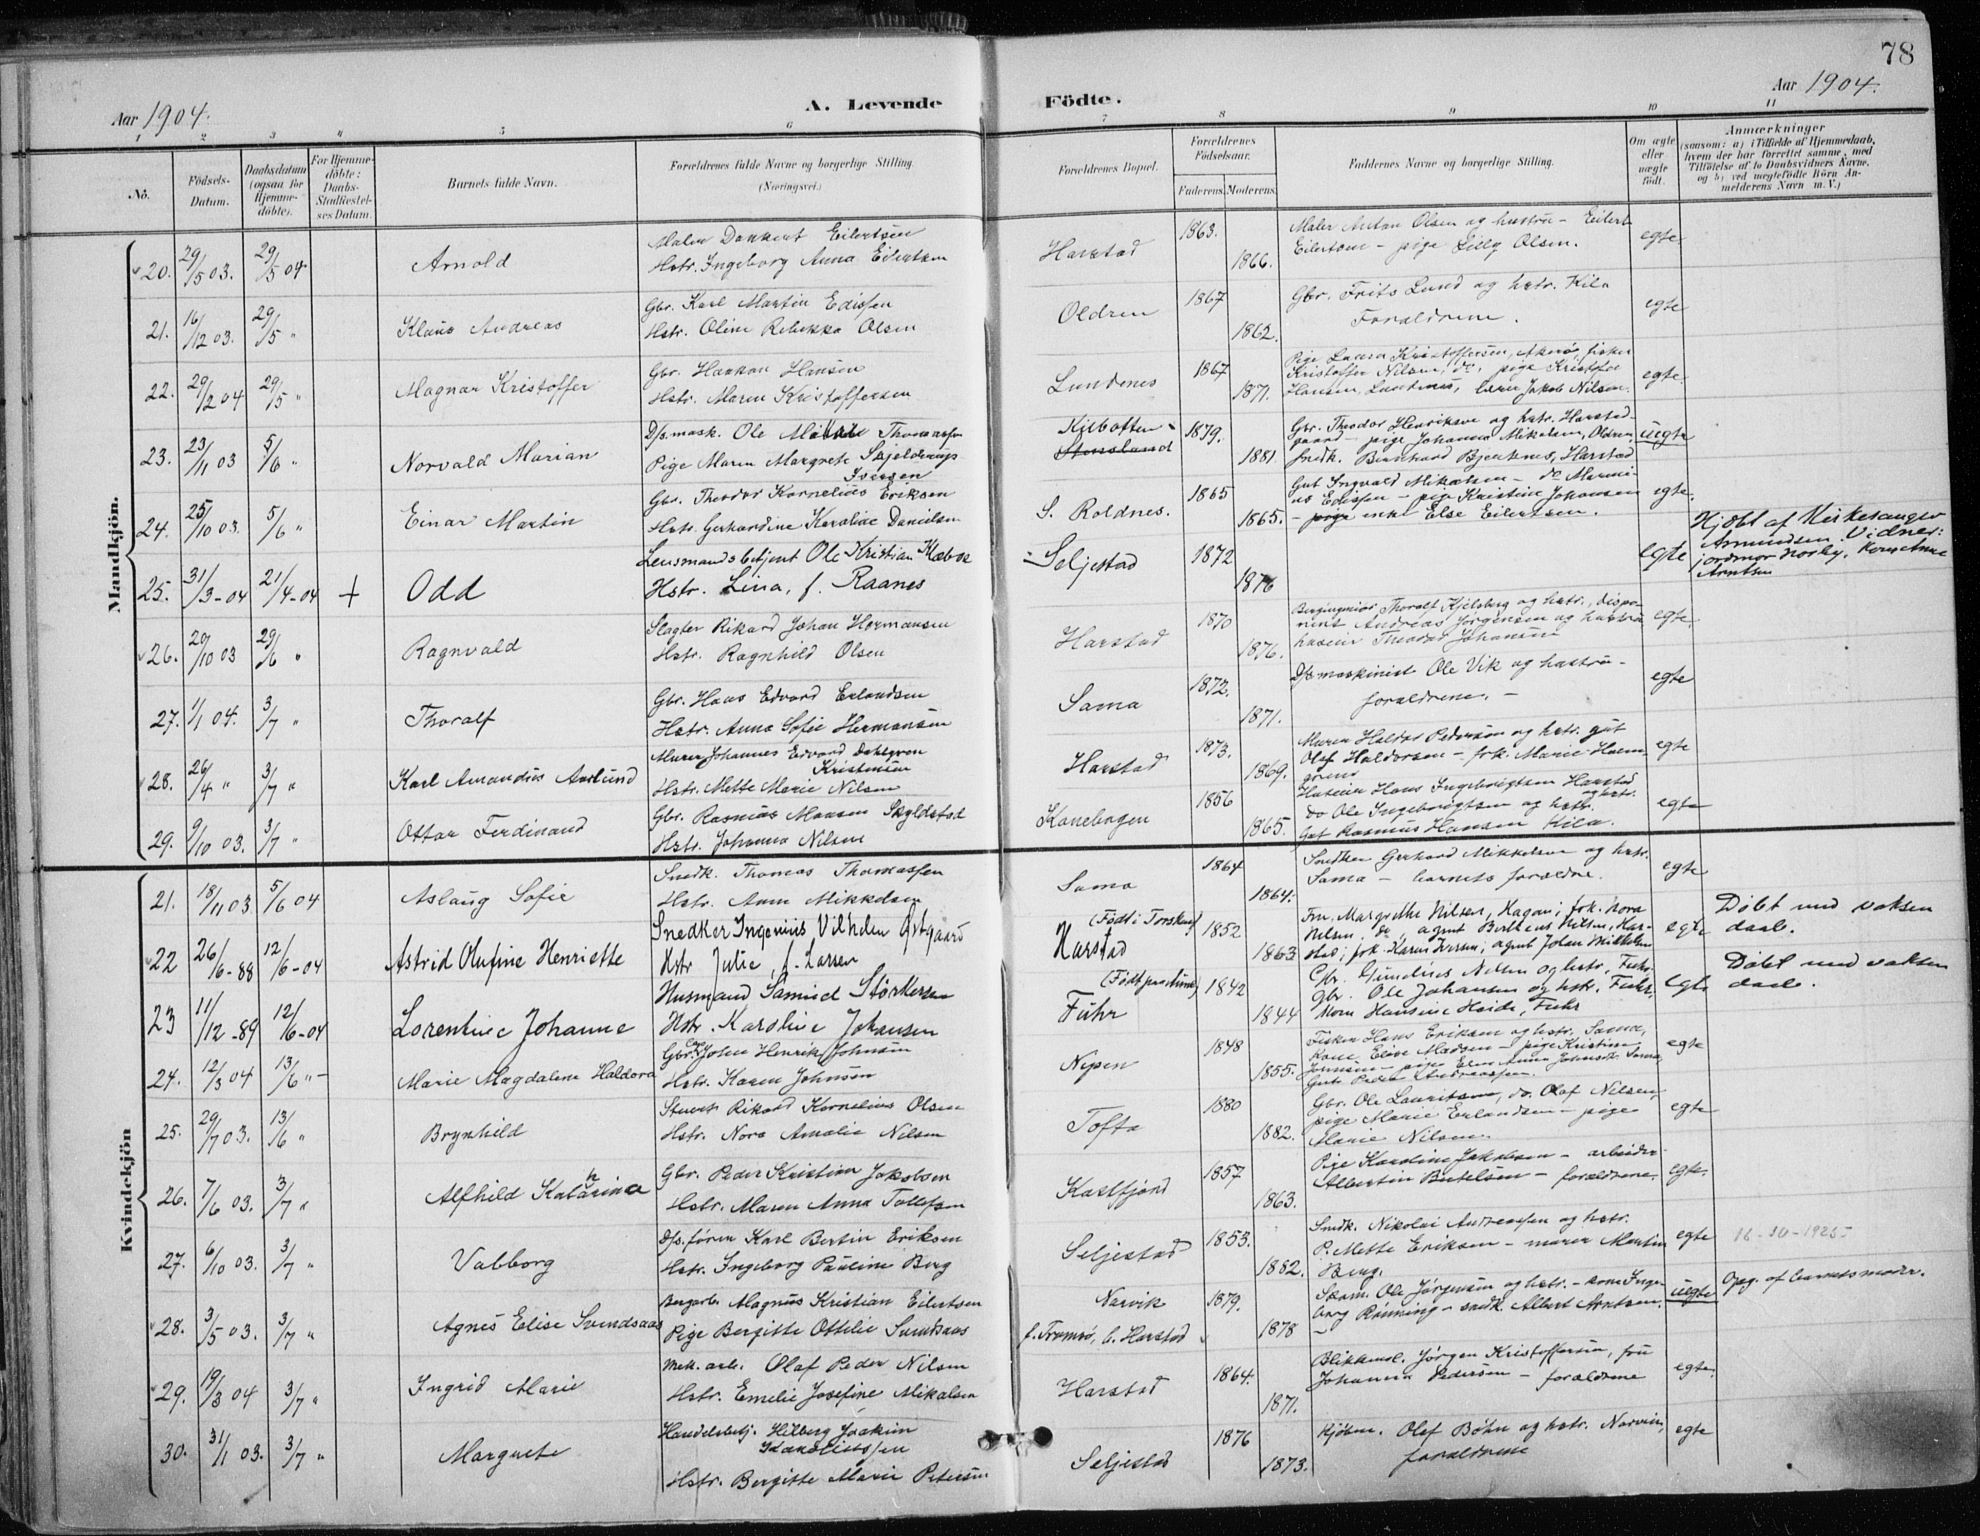 78
Aar 1904.
A. Levende Födte.
Aar 1904.
1 2 3 4 5 6 7 8 9 10 11
No.
Födsels-Datum.
Daabsdatum (ogsaa for Hjemmedöbte).
For Hjemmedöbte: Daabs-Stadfæstelses Datum.
Barnets fulde Navn.
Forældrenes fulde Navne og borgerlige Stilling.
(Næringsvei.)
Forældrenes Bopæl.
Forældrenes Födselsaar.
Faderens. Moderens.
Faddernes Navne og borgerlige Stilling.
Om ægte eller uægte födt.
Anmærkninger
(saasom: a) i Tilfælde af Hjemmedaab,
hvem der har forrettet samme, med
Tilföielse af to Daabsvidners Navne,
og b) ved uægtefödte Börn Anmelderens Navn m. V.)
Mandkjön.
20. 29/5 03. 29/5 04. Arnold
Maler Dankert Eilertsen
Hstr. Ingeborg Anna Eilertsen
Harstad 1863. 1866.
Maler Anton Olsen og hustru – Eilert
Eilertsen – pige Lilly Olsen.
egte
21. 16/12 03. 29/5 " Klaus Andreas
Gbr. Karl Martin Edissen
Hstr. Oline Rebekka Olsen
Oldren 1867 1862.
Gbr. Frits Lund og hstr. Kila
Forældrene.
egte
22. 29/2 04 29/5 " Magnar Kristoffer
Gbr. Haakon Hansen
Hstr. Maren Kristoffersen
Lundenes 1867 1871.
Pige Laura Kristoffersen, Akerø, fisker
Kristoffer Nilsen, do, pige Kristofa
Hansen, Lundenes, lærer Jakob Nilsen.
egte.
23. 23/11 03 5/6 " Norvald Marian
D/s mask. Ole Thomassen
Pige Maren Margrete Skjelderup
Iversen
Kilbotten
Stensland 1879. 1881.
Gbr. Theodor Henriksen og hstr. Harstad-
gaard – pige Johanna Mikalsen, Oldren,
Snedk. Bernhard Bjerknes, Harstad
uegte
24. 25/10 03. 5/6 " Einar Martin
Gbr. Theodor Kornelius Eriksen
Hstr. Gerhardine Karoline Danielsen
S. Roldnes. 1865 1865.
Gut Ingvald Mikalsen – do
Edissen – pige Kristine Johansen
– pige enke Else Eilertsen.
egte.
25. 31/3-04 21/4-04 + Odd
Lensmandsbetjent Ole Kristian Kleboe
Hstr. Lina, f. Raanes
Seljestad 1872 1876
egte
Hjdöbt af Kirkesanger
Asmundsen. Vidner:
jordmor Norby, Kone Anne
Arntsen
26. 20/10 03 29/6 " Ragnvald
Slagter Rikard Johan Hermansen
Hstr. Ragnhild Olsen
Harstad 1870 1876.
Thoralf Kjelsberg og hstr., dispo-
nent Andreas Jørgensen og hustru
huseier Theodor Johansen
egte.
27. 1/1 04. 3/7 " Thoralf
Gbr. Hans Edvard Erlandsen
Hstr. Anna Sofie Hermansen
Sama 1872. 1871.
D/s maskinist Ole Vik og hustru –
forældrene. –
egte
28. 26/4 " 3/7 " Karl Amandus Aarlund
Murer Johannes Edvard Dahlgren
Kristensen
Hstr. Mette Marie Nilsen
Harstad 1873. 1869.
Murer Haldor Pedersen og hstr. gut
Olaf Haldorsen – frk. Marie Holm-
gren
egte
29. 9/10 03. 3/7 " Ottar Ferdinand
Gbr. Rasmus Monsen Skyldstad
Hstr. Johanna Nilsen
Kanebogen 1856 1865.
Huseier Hans Ingebrigtsen Harstad
do Ole Ingebrigtsen og hstr.
Gut Rasmus Hansen Kila.
egte
Kvindekjön
21. 18/11 03 5/6 04 Aslaug Sofie
Snedk. Thomas Thomassen
Hstr. Anna Mikkelsen
Sama 1864 1864.
Snedker Gerhard Mikkelsen og hstr.
Sama – barnets forældre.
egte
22 26/6-88 12/6-04 Astrid Olufine Henriette
Snedker Ingenius Vilhelm Østgaard
Hstr Julie, f. Larsen
(Født i Torsken)
Harstad 1852 1863
Fru Margrethe Nilsen, Hagan; frk. Nora
Nilsen, do, agent Bertheus Nilsen, Har-
stad; frk. Karen Iversen; agent Johan Mikkelsen
egte
Döbt med voksen
daab.
23 11/12-89 12/6-04 Lorentine Johanne
Husmand Samuel Størkersen
Hstr. Karoline Johansen
Fuhr 1842 1844
Gbr. Gundnes Nilsen og hstr, Fuhr.
Gbr. Ole Johansen og hstr. Fuhr,
Kone Hansine Heide, Fuhr
egte
Döbt med voksen
daab.
24. 12/3 04 13/6 " Marie Magdalene Haldora
Gbr. Johen Henrik Johnsen
Hstr. Karen Johnsen
Nipen 1848 1855.
Fisker Hans Eriksen og hstr. Sama,
Kone Elise Madsen – pige Kristine
Johnsen – pige Elen Anna Johnsen Sama,
Gut Peder Andreassen.
egte
25. 29/7 03. 13/6 " Brynhild
Stuert Rikard Kornelius Olsen
Hstr. Nora Amalie Nilsen
Tofta 1880 1882.
Gbr. Ole Lauritsen, do. Olaf Nilsen,
pige Marie Erlandsen – pige
Marie Nilsen.
egte
26. 7/6 03. 3/7 " Alfhild Katharina
Gbr. Peder Kristian Jakobsen
Hstr. Maren Anna Tollefsen
Kasfjord 1857 1863.
Pige Karoline Jakobsen – arbeider
Albertin Bertelsen – forældrene.
egte.
27. 6/10 03. 3/7 " Valborg
D/s. fører Karl Bertin Eriksen
Hstr. Ingeborg Pauline Berg
Seljestad 1853. 1882.
Snedk. Nikolai Andreassen og hstr.
P. Mette Eriksen – murer Martin
Berg.
egte
16-30-1925
28. 3/5 03. 3/7 " Agnes Elise Svendsaas
Bergarb. Magnus Kristian Eilertsen
Pige Bergitte Ottilie Svendsaas
Narvik
f. Tromsø, b. Harstad 1879. 1878
Skom. Ole Jørgensen og hstr. – kone Inge-
borg Rønning – snedk. Albert Arntsen.
uegte
Opg. af barnets moder.
29. 19/3 04 3/7 " Ingrid Marie
Mek. arb. Olaf Peder Nilsen
Hstr. Emelie Josefine Mikalsen
Harstad 1864. 1871.
Blikkensl. Jørgen Kristoffersen, fru
Johanna Pedersen – forældrene
egte.
30. 31/1 03. 3/7 " Margrete
Handelsbetj. Hilberg Joakim
Hstr. Bergitte Marie Petersen
Seljestad 1876 1873.
Kjöbm. Olaf Böhn og hstr. Narvik,
forældrene
egte